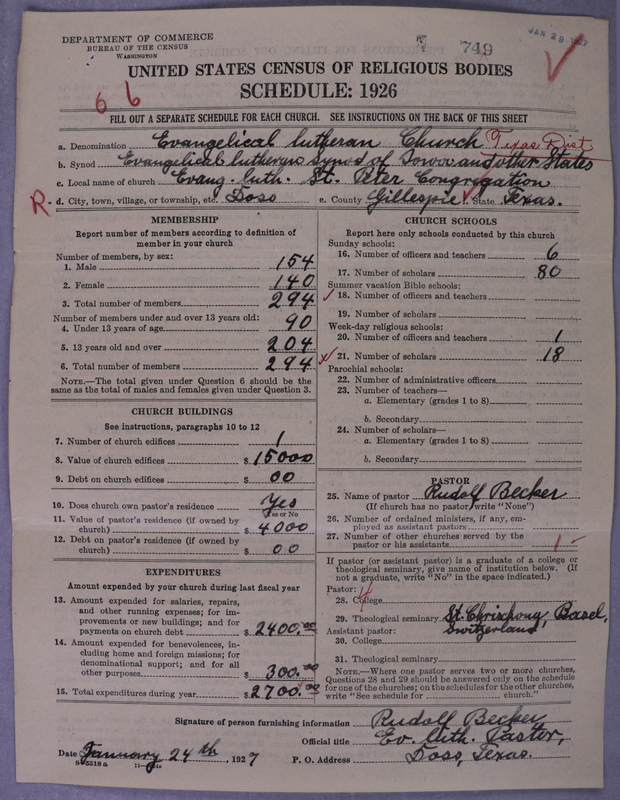 DEPARTMENT OF COMMERCE
BUREAU OF THE CENSUS
WASHINGTON
749
JAN 29 1927
UNITED STATES CENSUS OF RELIGIOUS BODIES
SCHEDULE: 1926
6 6
FILL OUT A SEPARATE SCHEDULE FOR EACH CHURCH. SEE INSTRUCTIONS ON THE BACK OF THIS SHEET
a. Denomination Evangelical lutheran Church Texas Dist
b. Synod Evangelical lutheran Synod of Iowa and other States
c. Local name of church Evang. luth. St. Peter Congregation
R - d. City, town, village, or township, etc. Doss e. County Gillespie State Texas.
MEMBERSHIP
Report number of members according to definition of
member in your church
Number of members, by sex:
1. Male 154
2. Female 140
3. Total number of members 294
Number of members under and over 13 years old:
4. Under 13 years of age 90
5. 13 years old and over 204
6. Total number of members 294
NOTE.—The total given under Question 6 should be
same as the total of males and females given under Question 3.
CHURCH BUILDINGS
See instructions, paragraphs 10 to 12
7. Number of church edifices 1
8. Value of church edifices $ 15000
9. Debt on church edifices $ 00
10. Does church own pastor's residence Yes
Yes or No
11. Value of pastor's residence (if owned by
church) $ 4000
12. Debt on pastor's residence (if owned by
church) $ 00
EXPENDITURES
Amount expended by your church during last fiscal year
13. Amount expended for salaries, repairs,
and other running expenses; for im-
provements or new buildings; and for
payments on church debt $ 2400.00
14. Amount expended for benevolences, in-
cluding home and foreign missions; for
denominational support; and for all
other purposes $ 300.00
15. Total expenditures during year $ 2700.00
CHURCH SCHOOLS
Report here only schools conducted by this church
Sunday schools:
16. Number of officers and teachers 6
17. Number of scholars 80
Summer vacation Bible schools:
18. Number of officers and teachers
19. Number of scholars
Week-day religious schools:
20. Number of officers and teachers 1
21. Number of scholars 18
Parochial schools:
22. Number of administrative officers
23. Number of teachers—
a. Elementary (grades 1 to 8)
b. Secondary
24. Number of scholars—
a. Elementary (grades 1 to 8)
b. Secondary
PASTOR
25. Name of pastor Rudolf Becker
(If church has no pastor, write "None")
26. Number of ordained ministers, if any, em-
ployed as assistant pastors
27. Number of other churches served by the
pastor or his assistants 1 -
If pastor (or assistant pastor) is a graduate of a college or
theological seminary, give name of institution below. (If
not a graduate, write "No" in the space indicated.)
Pastor: 4
28. College
29. Theological seminary St. Chrischona, Basel,
Assistant pastor: Switzerland
30. College
31. Theological seminary
NOTE.—Where one pastor serves two or more churches,
Questions 28 and 29 should be answered only on the schedule
for one of the churches; on the schedules for the other churches,
write "See schedule for church."
Signature of person furnishing information Rudolf Becker
Official title Ev. luth. Pastor,
Date January 24th, 1927 P. O. Address Doss, Texas.
8-5518 a 11-